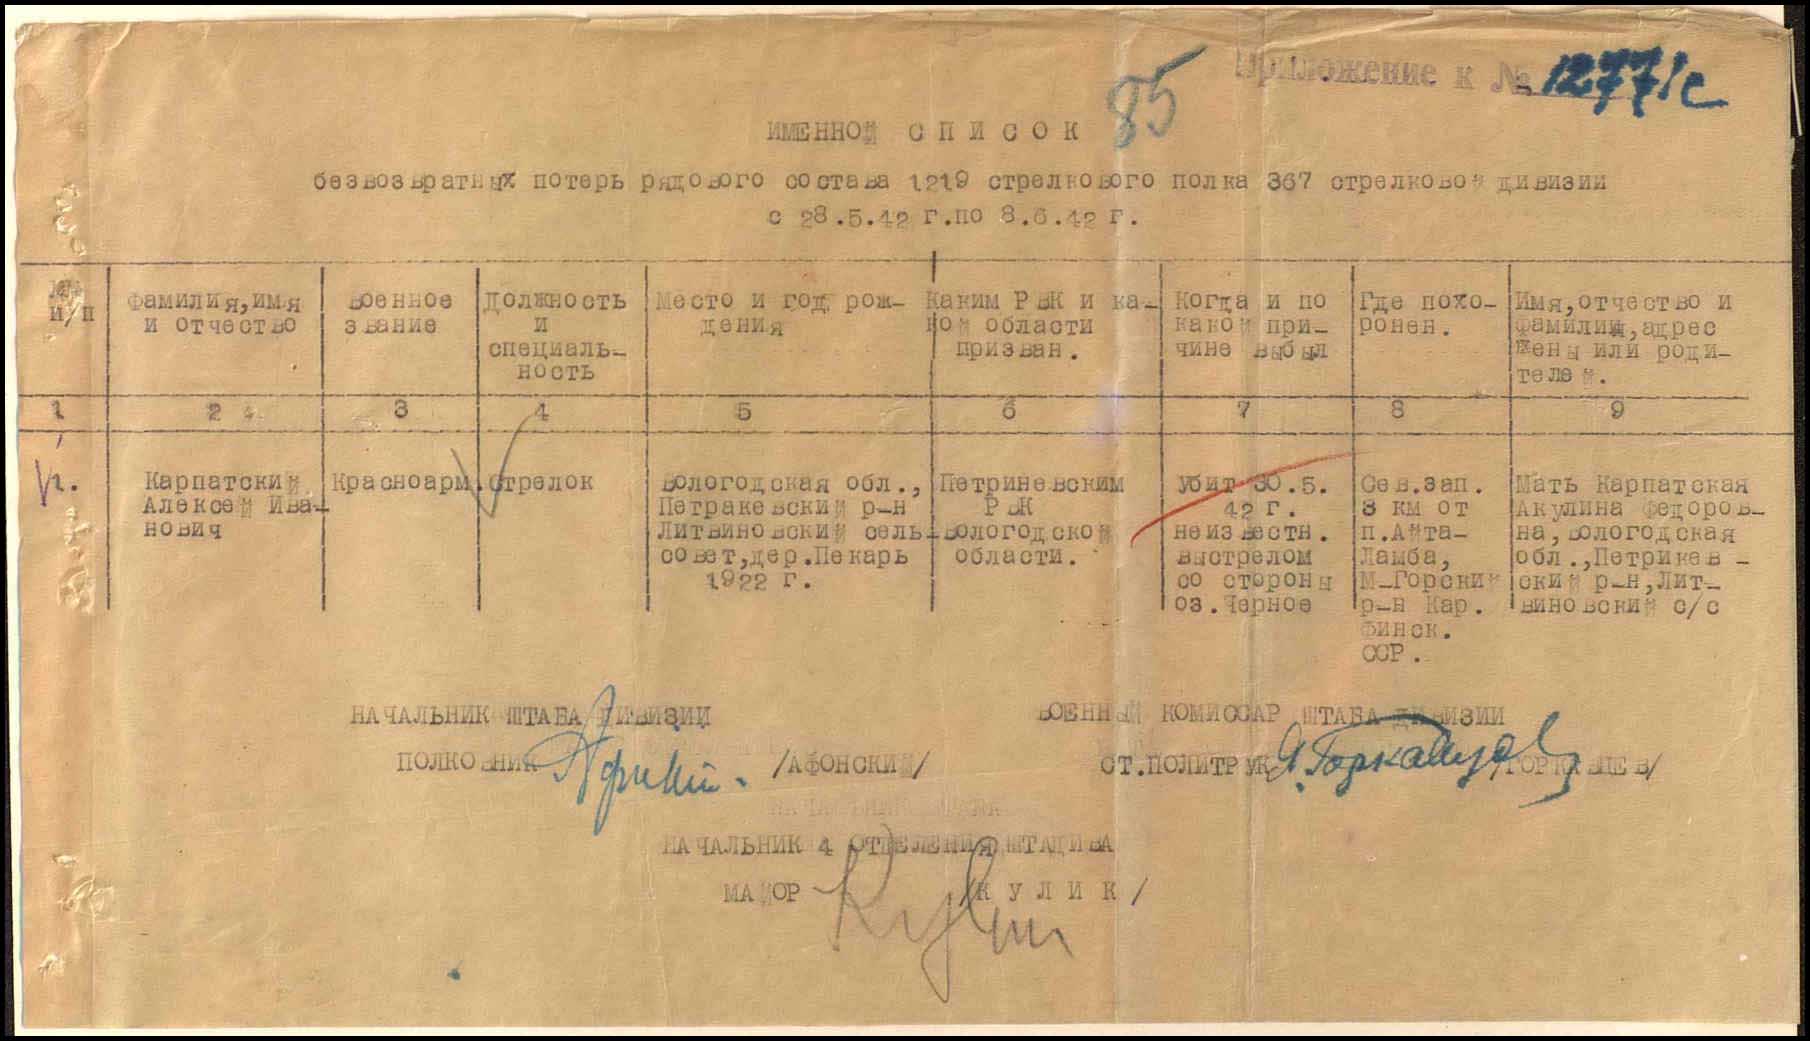 Приложение к № 1277/с
85
ИМЕННОЙ СПИСОК
безвозвратных потерь рядового состава 1219 стрелкового полка 367 стрелковой дивизии
с 28.5.42 г.по 8.6.42 г.
№№ п/п
Фамилия,имя и отчество
Военное звание
Должность и специаль- ность
Место и год рож- дения
Каким РВК и ка- кой области призван.
Когда и по какой при- чине выбыл
Где похо- ронен.
Имя,отчество и фамилия,адрес жены или роди- телей.
1 2 3 4 5 6 7 8 9
1.
Карпатский Алексей Ива- нович
Красноарм.
стрелок
Вологодская обл., Петракевский р-н Литвиновский сель- совет,дер.Пекарь 1922 г.
Петриневским РВК Вологодской области.
Убит 30.5. 42 г. неизвестн. выстрелом со стороны оз.Черное
Сев.зап. 3 км от п.Айта- Ламба, М-Горский р-н Кар. Финск. ССР.
Мать Карпатская Акулина Федоров- на,Вологодская обл.,Петрикев- ский р-н,Лит- виновский с/с
НАЧАЛЬНИК ШТАБА ДИВИЗИИ
ПОЛКОВНИК /АФОНСКИЙ/
ВОЕННЫЙ КОМИССАР ШТАБА ДИВИЗИИ
СТ.ПОЛИТРУК /ГОРКАВЦЕВ/
НАЧАЛЬНИК 4 ОТДЕЛЕНИЯ ШТАДИВА
МАЙОР /КУЛИК/